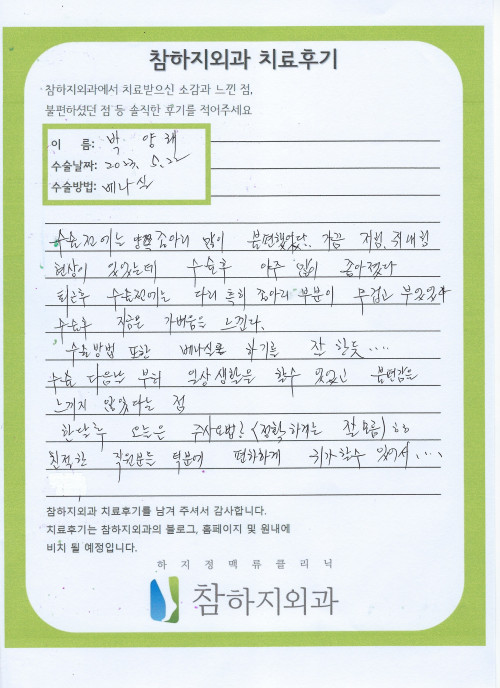 참하지외과 치료후기
참하지외과에서 치료받으신 소감과 느낀 점,
불편하셨던 점 등 솔직한 후기를 적어주세요
이 름: 박 양 래
수술날짜: 2023. 5. 22
수술방법: 베나실
수술전에는 양쪽 종아리 많이 불편했었다. 가끔 저림, 쥐내림
현상이 있었는데 수술후 아주 많이 좋아졌다
퇴근후 수술전에는 다리 특히 종아리 부분이 무겁고 부었었다
수술후 지금은 가벼움을 느낀다.
수술방법 또한 베나실로 하기를 잘 한듯....
수술 다음날 부터 일상생활을 할수 있었고 불편감을
느끼지 않았다는 점
한달후 오늘은 주사요법? (정확하게는 잘 모름)
친절한 직원분들 덕분에 편하하게 귀가할수 있어서....
참하지외과 치료후기를 남겨 주셔서 감사합니다.
치료후기는 참하지외과의 블로그, 홈페이지 및 원내에
비치 될 예정입니다.
하지정맥류클리닉
참하지외과